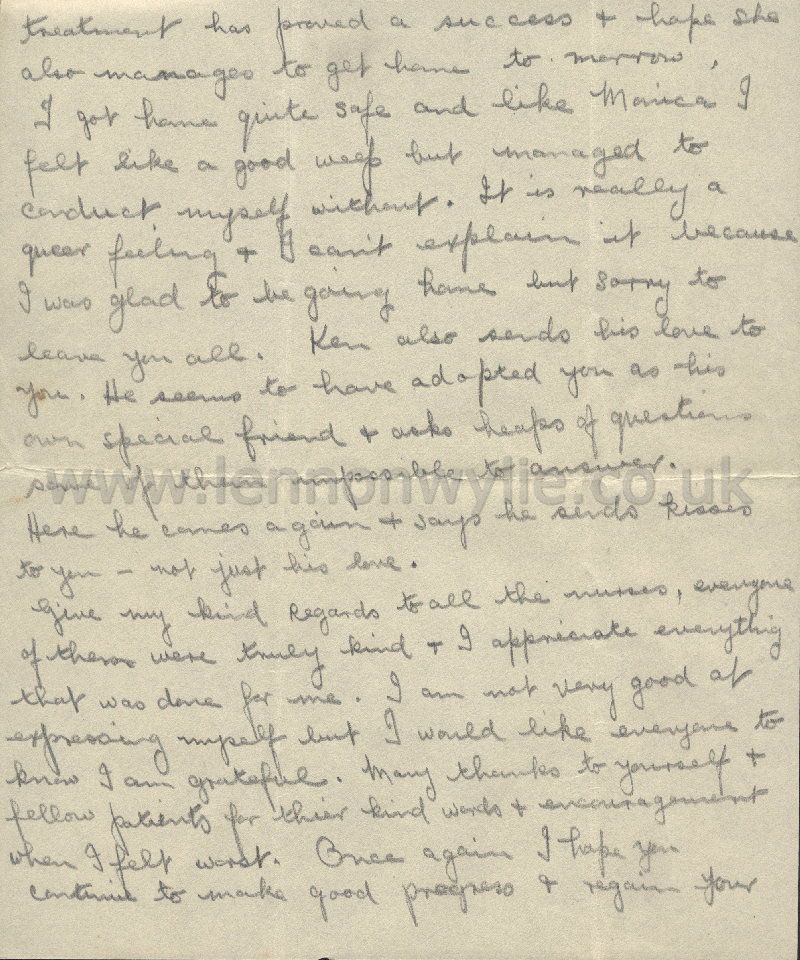 treatment has proved a success & hope she
also manages to get home to-morrow.
I got home quite safe and like Monica I
felt like a good weep but managed to
conduct myself without. It is really a
queer feeling & I can't explain it because
I was glad to be going home but sorry to
leave you all. Ken also sends his love to
you. He seems to have adopted you as his
own special friend & asks heaps of questions
some of them impossible to answer.
www.lennonwylie.co.uk
Here he comes again & says he sends kisses
to you – not just his love.
Give my kind regards to all the nurses, everyone
of them were truly kind & I appreciate everythig
that was done for me. I am not very good at
expressing myself but I would like everyone to
know I am grateful. Many thanks to yourself &
fellow patients for thier kind words & encouragement
when I felt worst. Once again I hope you
continue to make good progress & regain your